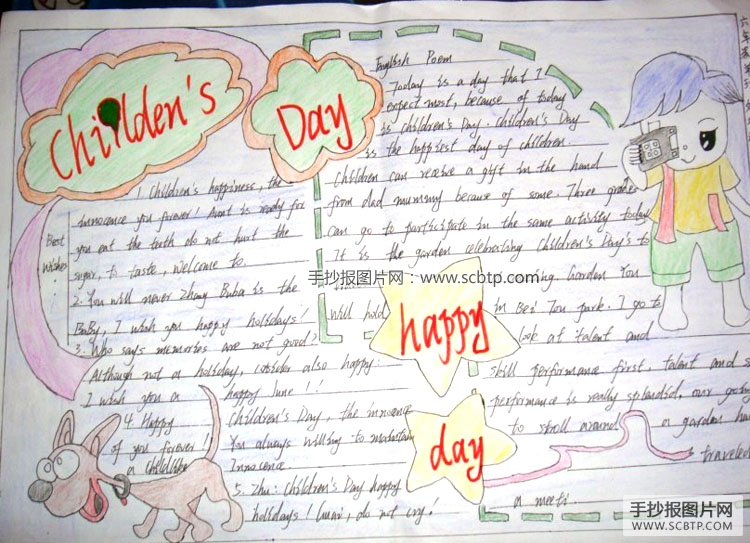 Children's
Day
English Poem
Today is a day that I
expect most, because of today
is children's Day. Children's Day
is the happiest day of children.
Children can receive a gift in the hand
from dad mummy because of some. Three grades
can go to participate in the same activity today
It is the garden celebrating Children's Day's to
ing Garden You
Will hold in Bei Tou park. I go to
look at talent and
skill performance first, talent and s
performance is really splendid, our going
to stroll around a garden ha
traveled
a meeti
Best
Wishes:
1 Children's happiness, the
innocence you forever! Aunt is ready for
you eat the teeth do not hurt the
sugar, to taste, welcome to
2. You will never Zhang Buba is the
BaBy, I wish you happy holidays!
3. Who says memories are not good?
Although not a holiday, consider also happy:
I wish you a happy June 1!
4. Happy Children's Day, the innocence
of you forever! You always willing to maintain
a childlike Innocence.
5. Zhu: Children's Day happy
holidays! do not cry!
happy
day
手抄报图片网：www.scbtp.com
手抄报图片网
WWW.SCBTP.COM